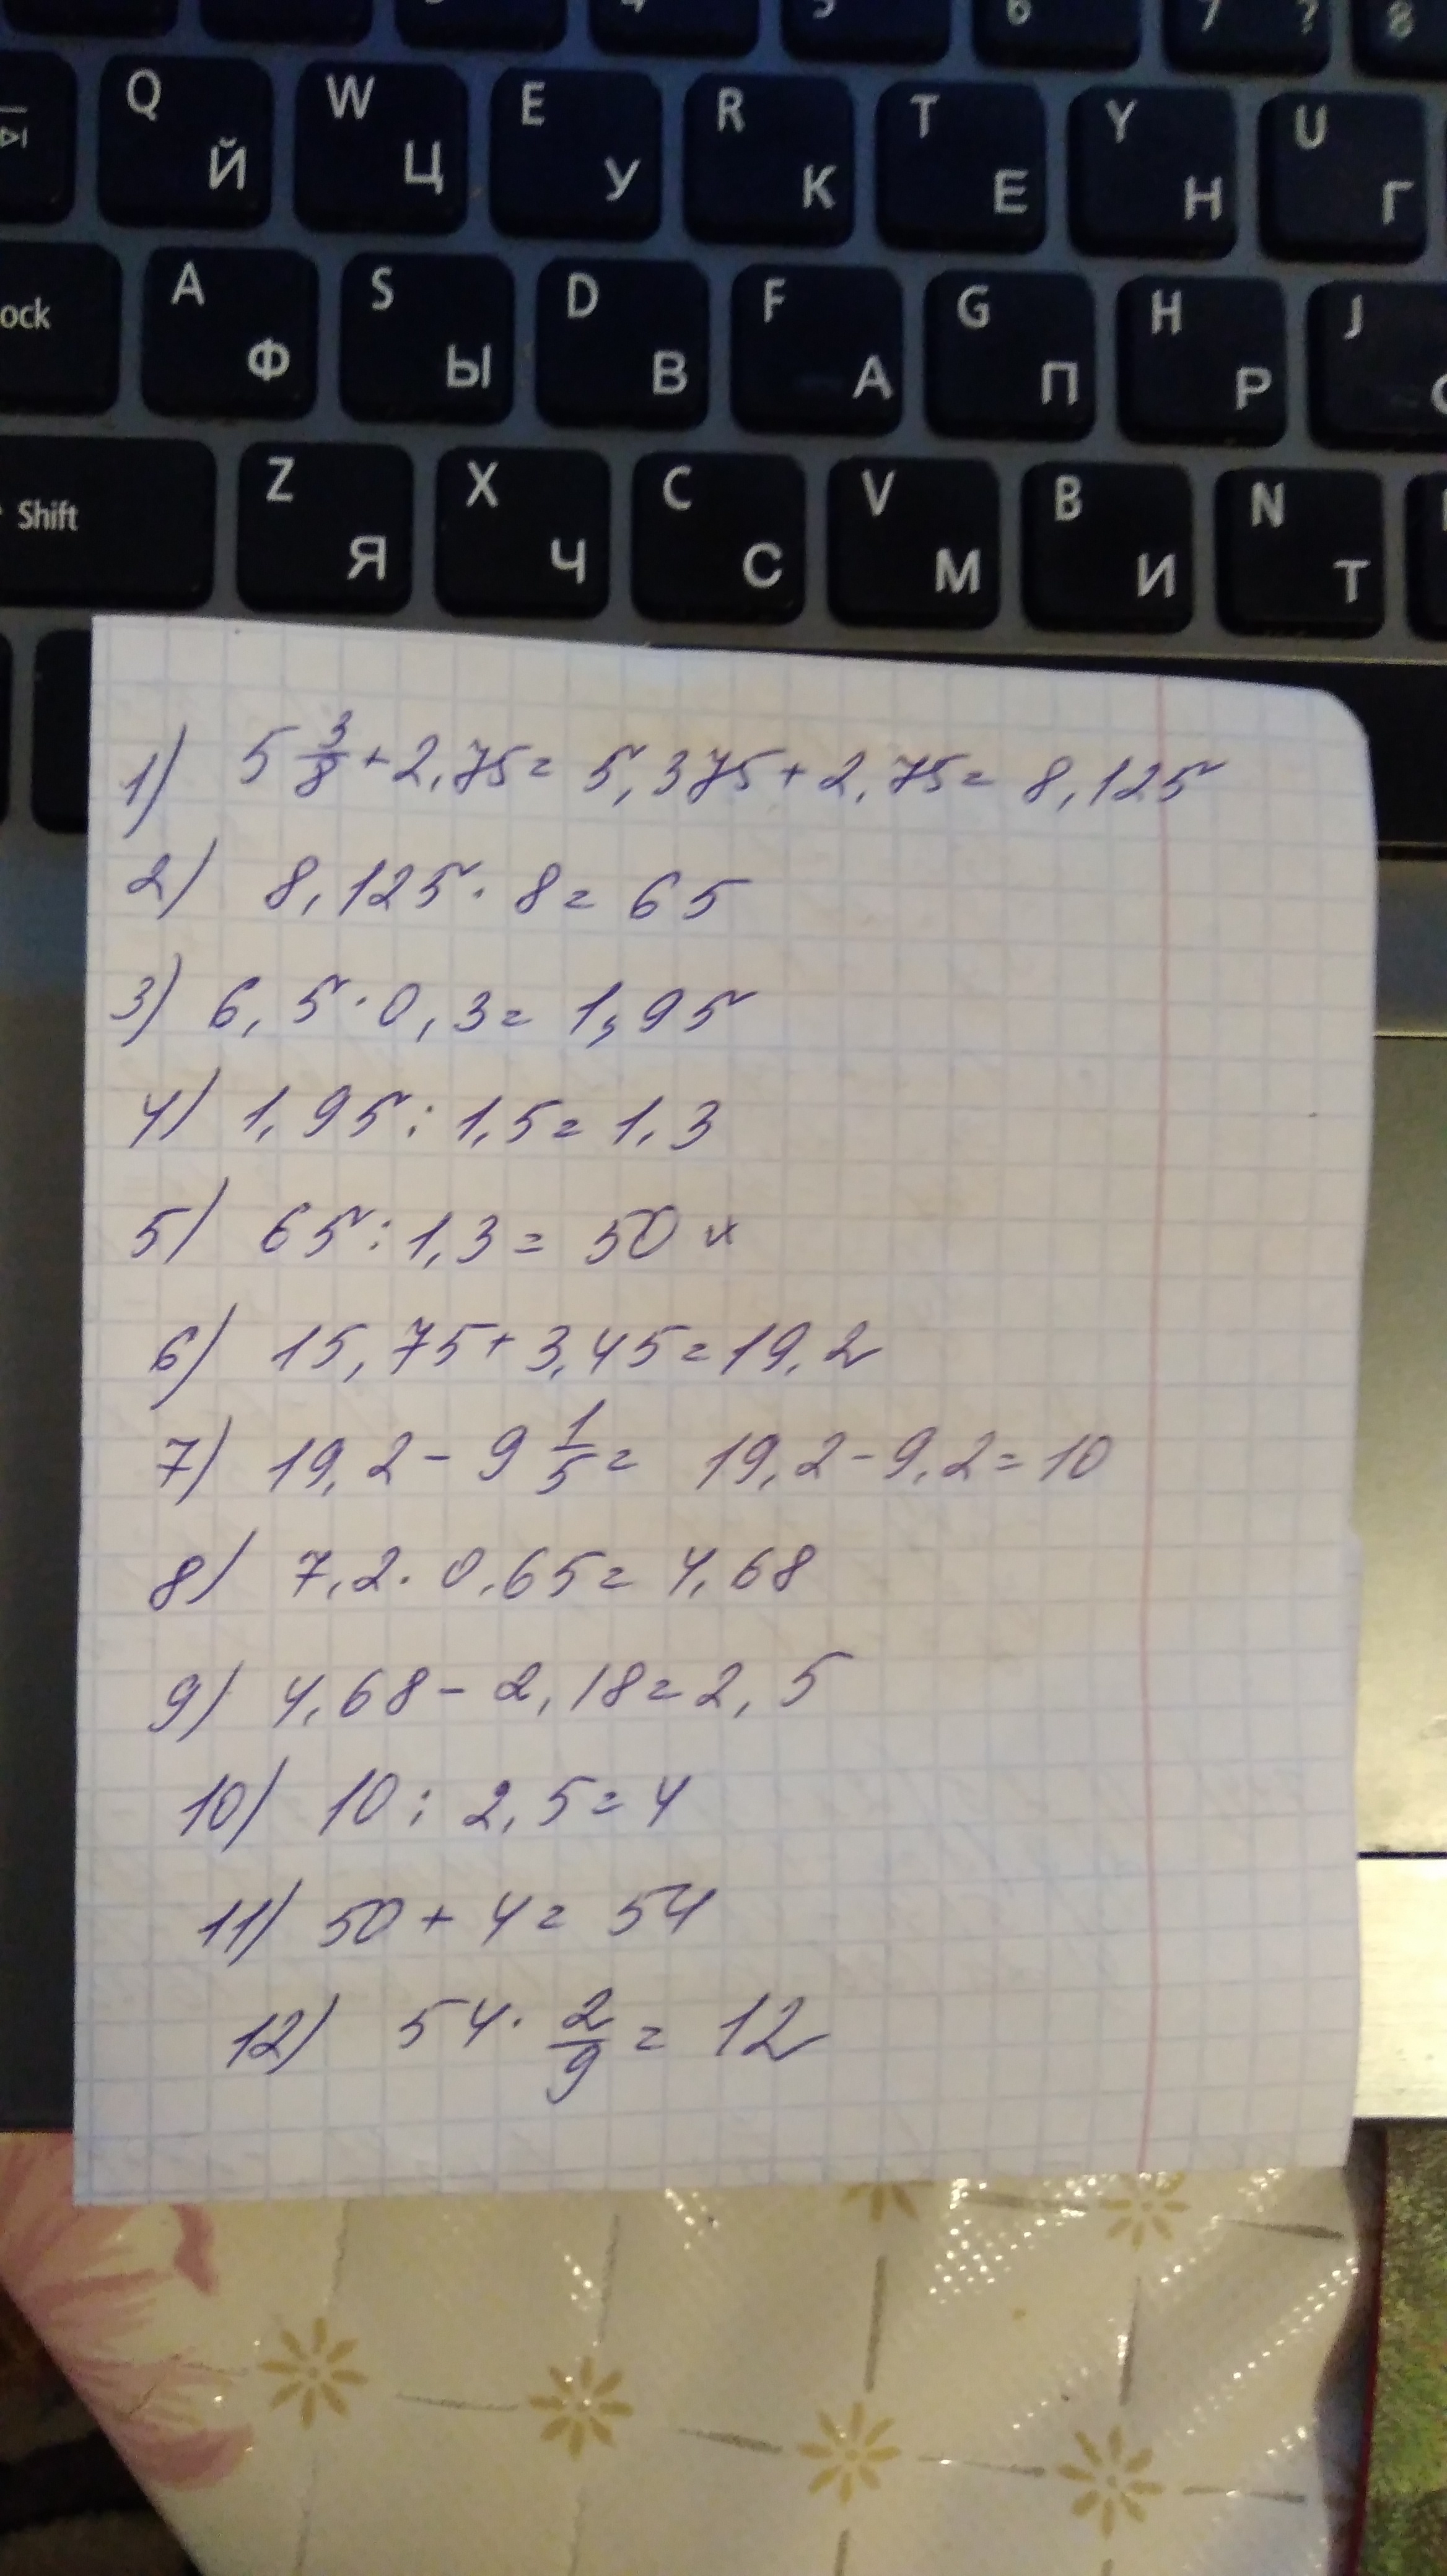 4 5 6 7 ? 8
Q W E R T Y U
Й Ц У К Е Н Г
ock A S D F G H J
Ф Ы В А П Р
Shift Z X C V B N
Я Ч С М И Т
1) 5 3/8 + 2,75 = 5,375 + 2,75 = 8,125
2) 8,125 · 8 = 65
3) 6,5 · 0,3 = 1,95
4) 1,95 : 1,5 = 1,3
5) 65 : 1,3 = 50
6) 15,75 + 3,45 = 19,2
7) 19,2 - 9 1/5 = 19,2 - 9,2 = 10
8) 7,2 · 0,65 = 4,68
9) 4,68 - 2,18 = 2,5
10) 10 : 2,5 = 4
11) 50 + 4 = 54
12) 54 · 2/9 = 12